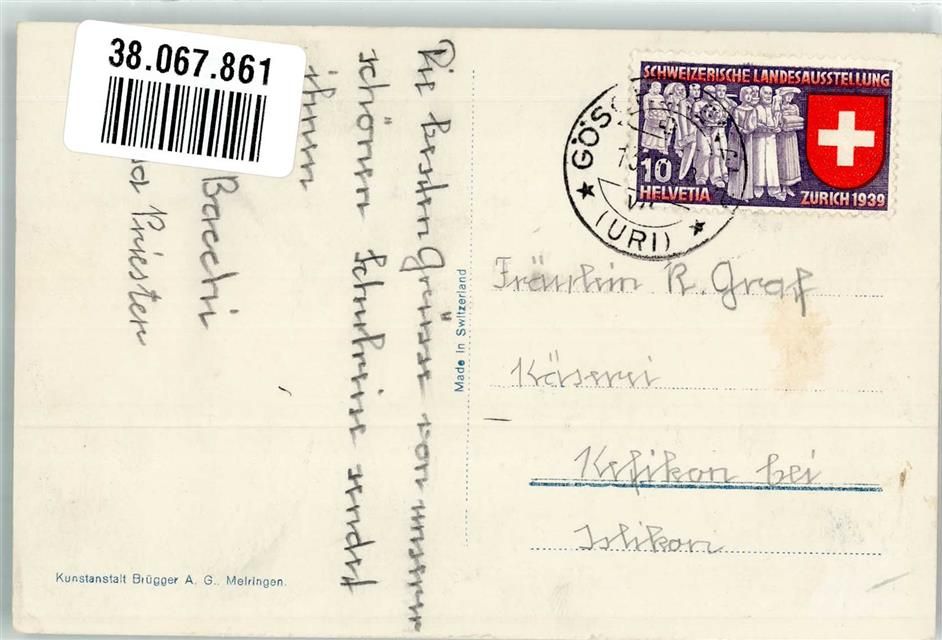 38.067.861
Die besten Grüsse von unserer
schönen Schulreise sendet
ihnen
Baechi
Priester
Made in Switzerland
Kunstanstalt Brügger A. G., Meiringen.
SCHWEIZERISCHE LANDESAUSSTELLUNG
10
HELVETIA
ZURICH 1939
GÖSCHENEN
(URI)
Fräulein R. Graf
Käserei
Kefikon bei
Islikon